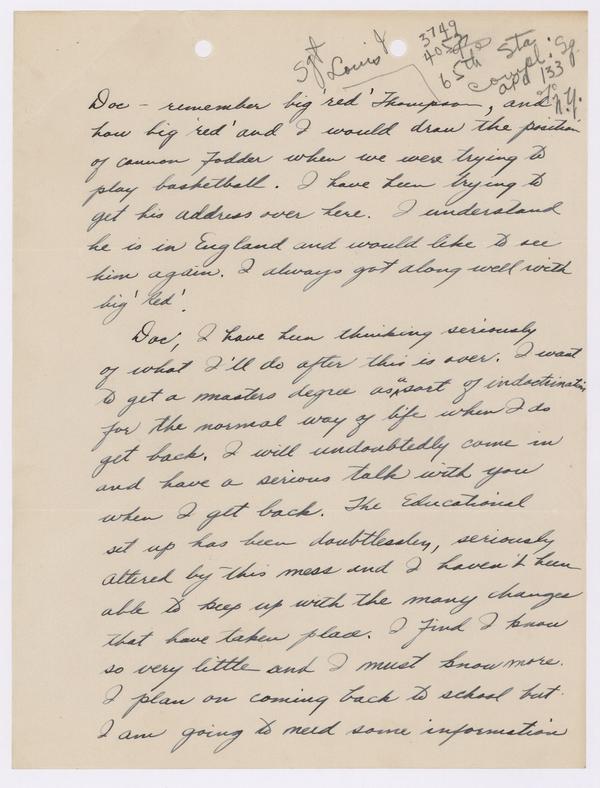 Sgt
Louis J
3749
6 5th Sta.
Compl. Sq.
APO 133
N.Y.
Doc – remember big 'red' Thompson, and
how big 'red' and I would draw the position
of cannon fodder when we were trying to
play basketball. I have been trying to
get his address over here. I understand
he is in England and would like to see
him again. I always got along well with
big 'red'.
Doc, I have been thinking seriously
of what I'll do after this is over. I want
to get a masters degree as a sort of indoctrination
for the normal way of life when I do
get back. I will undoubtedly come in
and have a serious talk with you
when I get back. The Educational
set up has been doubtlessly, seriously
altered by this mess and I haven't been
able to keep up with the many changes
that have taken place. I find I know
so very little and I must know more.
I plan on coming back to school but
I am going to need some information